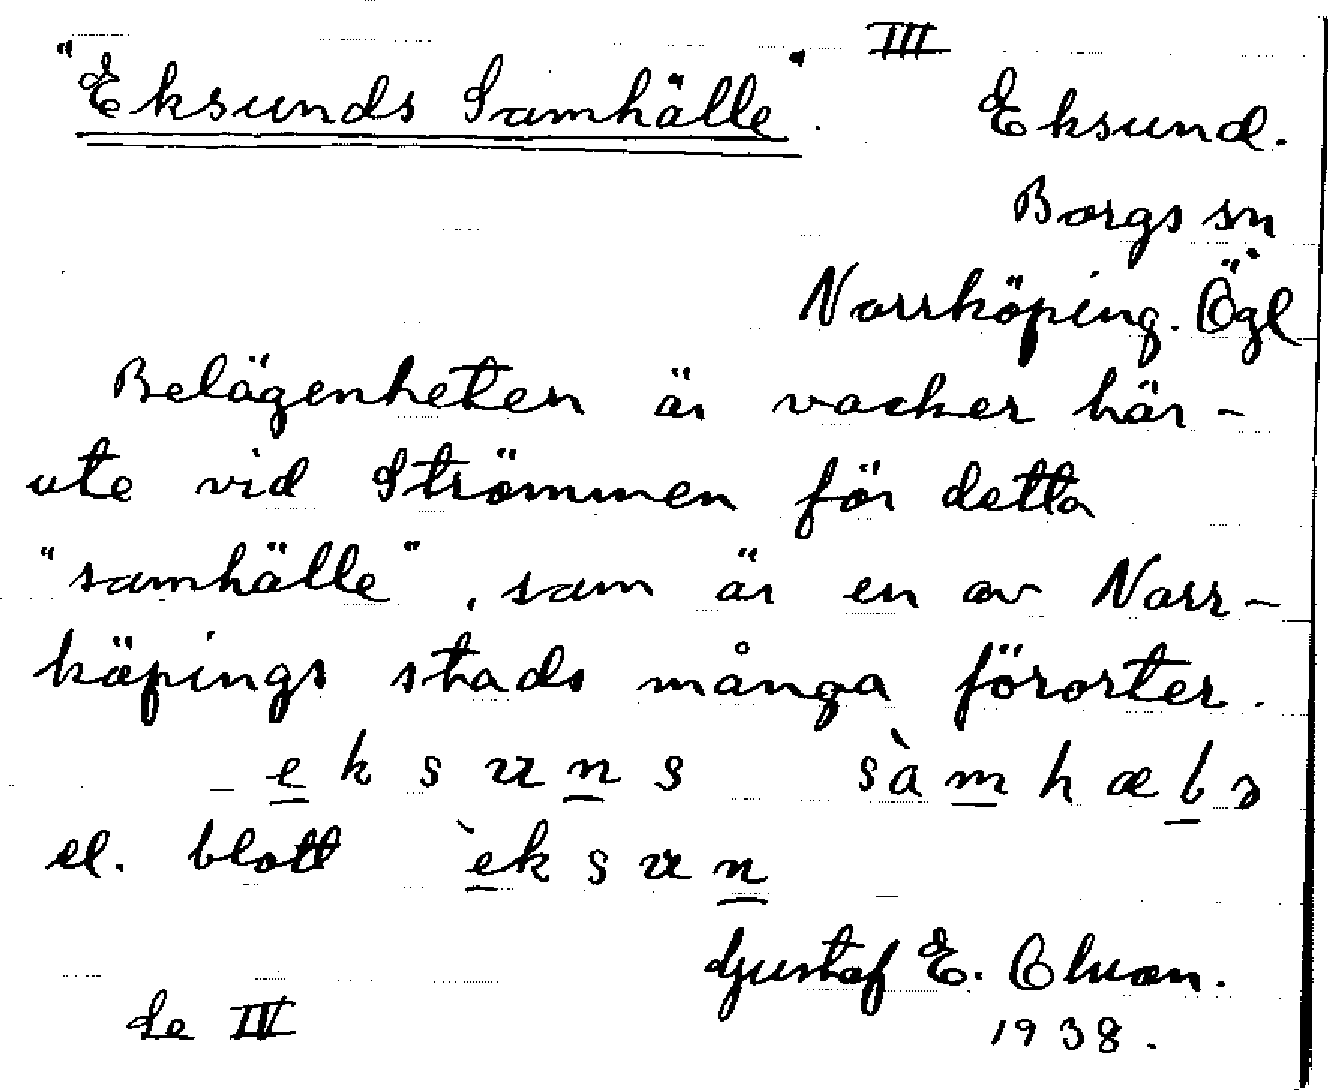 "Eksunds Samhälle".
III
Eksund.
Borgs sn
Norrköping. Ögl
Belägenheten är vacker här-
ute vid Strömmen för detta
"samhälle", som är en av Norr-
köpings stads många förorter.
eksuns sàmhælə
el. blott èksun
Gustaf E. Olsson.
1938.
Se IV